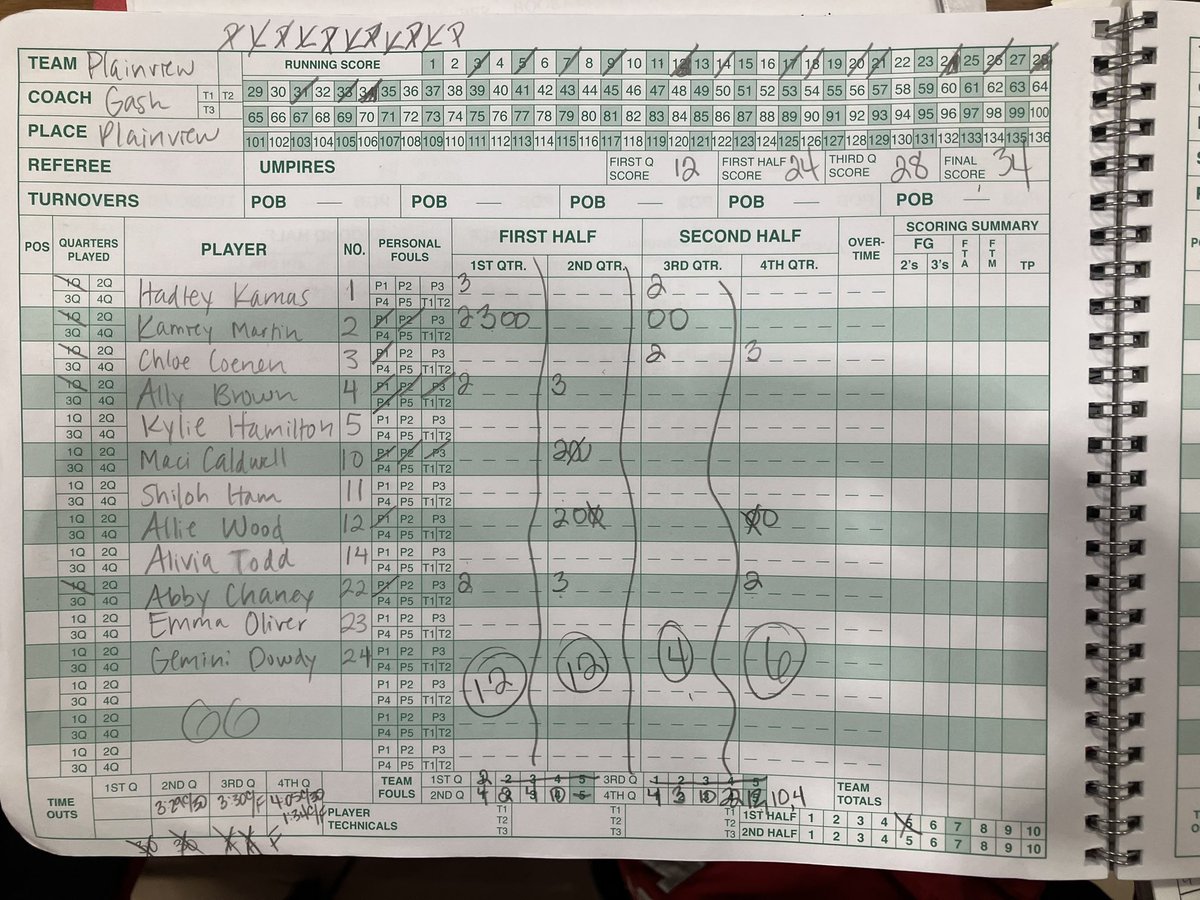 TEAM Plainview RUNNING SCORE 1 2 3 4 5 6 7 8 9 10 11 12 13 14 15 16 17 18 19 20 21 22 23 24 25 26 27 28
COACH Gash T1 T2 T3 29 30 31 32 33 34 35 36 37 38 39 40 41 42 43 44 45 46 47 48 49 50 51 52 53 54 55 56 57 58 59 60 61 62 63 64
65 66 67 68 69 70 71 72 73 74 75 76 77 78 79 80 81 82 83 84 85 86 87 88 89 90 91 92 93 94 95 96 97 98 99 100
PLACE Plainview 101 102 103 104 105 106 107 108 109 110 111 112 113 114 115 116 117 118 119 120 121 122 123 124 125 126 127 128 129 130 131 132 133 134 135 136
REFEREE UMPIRES FIRST Q SCORE 12 FIRST HALF SCORE 24 THIRD Q SCORE 28 FINAL SCORE 34
TURNOVERS POB — POB — POB — POB — POB —
POS QUARTERS PLAYED PLAYER NO. PERSONAL FOULS FIRST HALF SECOND HALF OVER-TIME SCORING SUMMARY
1ST QTR. 2ND QTR. 3RD QTR. 4TH QTR. FG 2's 3's FTA FTM TP
1Q 2Q P1 P2 P3 3 2
3Q 4Q Hadley Kamas 1 P4 P5 T1 T2
1Q 2Q P1 P2 P3 2300 00
3Q 4Q Kamrey Martin 2 P4 P5 T1 T2
1Q 2Q P1 P2 P3 2 3
3Q 4Q Chloe Coenen 3 P4 P5 T1 T2
1Q 2Q P1 P2 P3 2 3
3Q 4Q Ally Brown 4 P4 P5 T1 T2
1Q 2Q P1 P2 P3
3Q 4Q Kylie Hamilton 5 P4 P5 T1 T2
1Q 2Q P1 P2 P3 200
3Q 4Q Maci Caldwell 10 P4 P5 T1 T2
1Q 2Q P1 P2 P3
3Q 4Q Shiloh Ham 11 P4 P5 T1 T2
1Q 2Q P1 P2 P3 200 00
3Q 4Q Allie Wood 12 P4 P5 T1 T2
1Q 2Q P1 P2 P3
3Q 4Q Alivia Todd 14 P4 P5 T1 T2
1Q 2Q P1 P2 P3 2 3 2
3Q 4Q Abby Chaney 22 P4 P5 T1 T2
1Q 2Q P1 P2 P3
3Q 4Q Emma Oliver 23 P4 P5 T1 T2
1Q 2Q P1 P2 P3
3Q 4Q Gemini Dowdy 24 P4 P5 T1 T2
1Q 2Q P1 P2 P3 12 12 4 6
3Q 4Q P4 P5 T1 T2
1Q 2Q P1 P2 P3
3Q 4Q P4 P5 T1 T2
1Q 2Q P1 P2 P3
3Q 4Q P4 P5 T1 T2
TIME OUTS 1ST Q 2ND Q 3RD Q 4TH Q
TEAM FOULS 1ST Q 2 3 4 5 3RD Q 1 2 3 4 5
2ND Q 4TH Q 10,4
PLAYER TECHNICALS T1 T2 T3 T1 T2 T3 T1 T2 T3
TEAM TOTALS
1ST HALF 1 2 3 4 5 6 7 8 9 10
2ND HALF 1 2 3 4 5 6 7 8 9 10